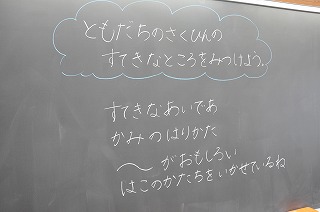 ともだちのさくひんの
すてきなところをみつけよう。
すてきなあいであ
かみのはりかた
〜がおもしろい
はこのかたちをいかせているね